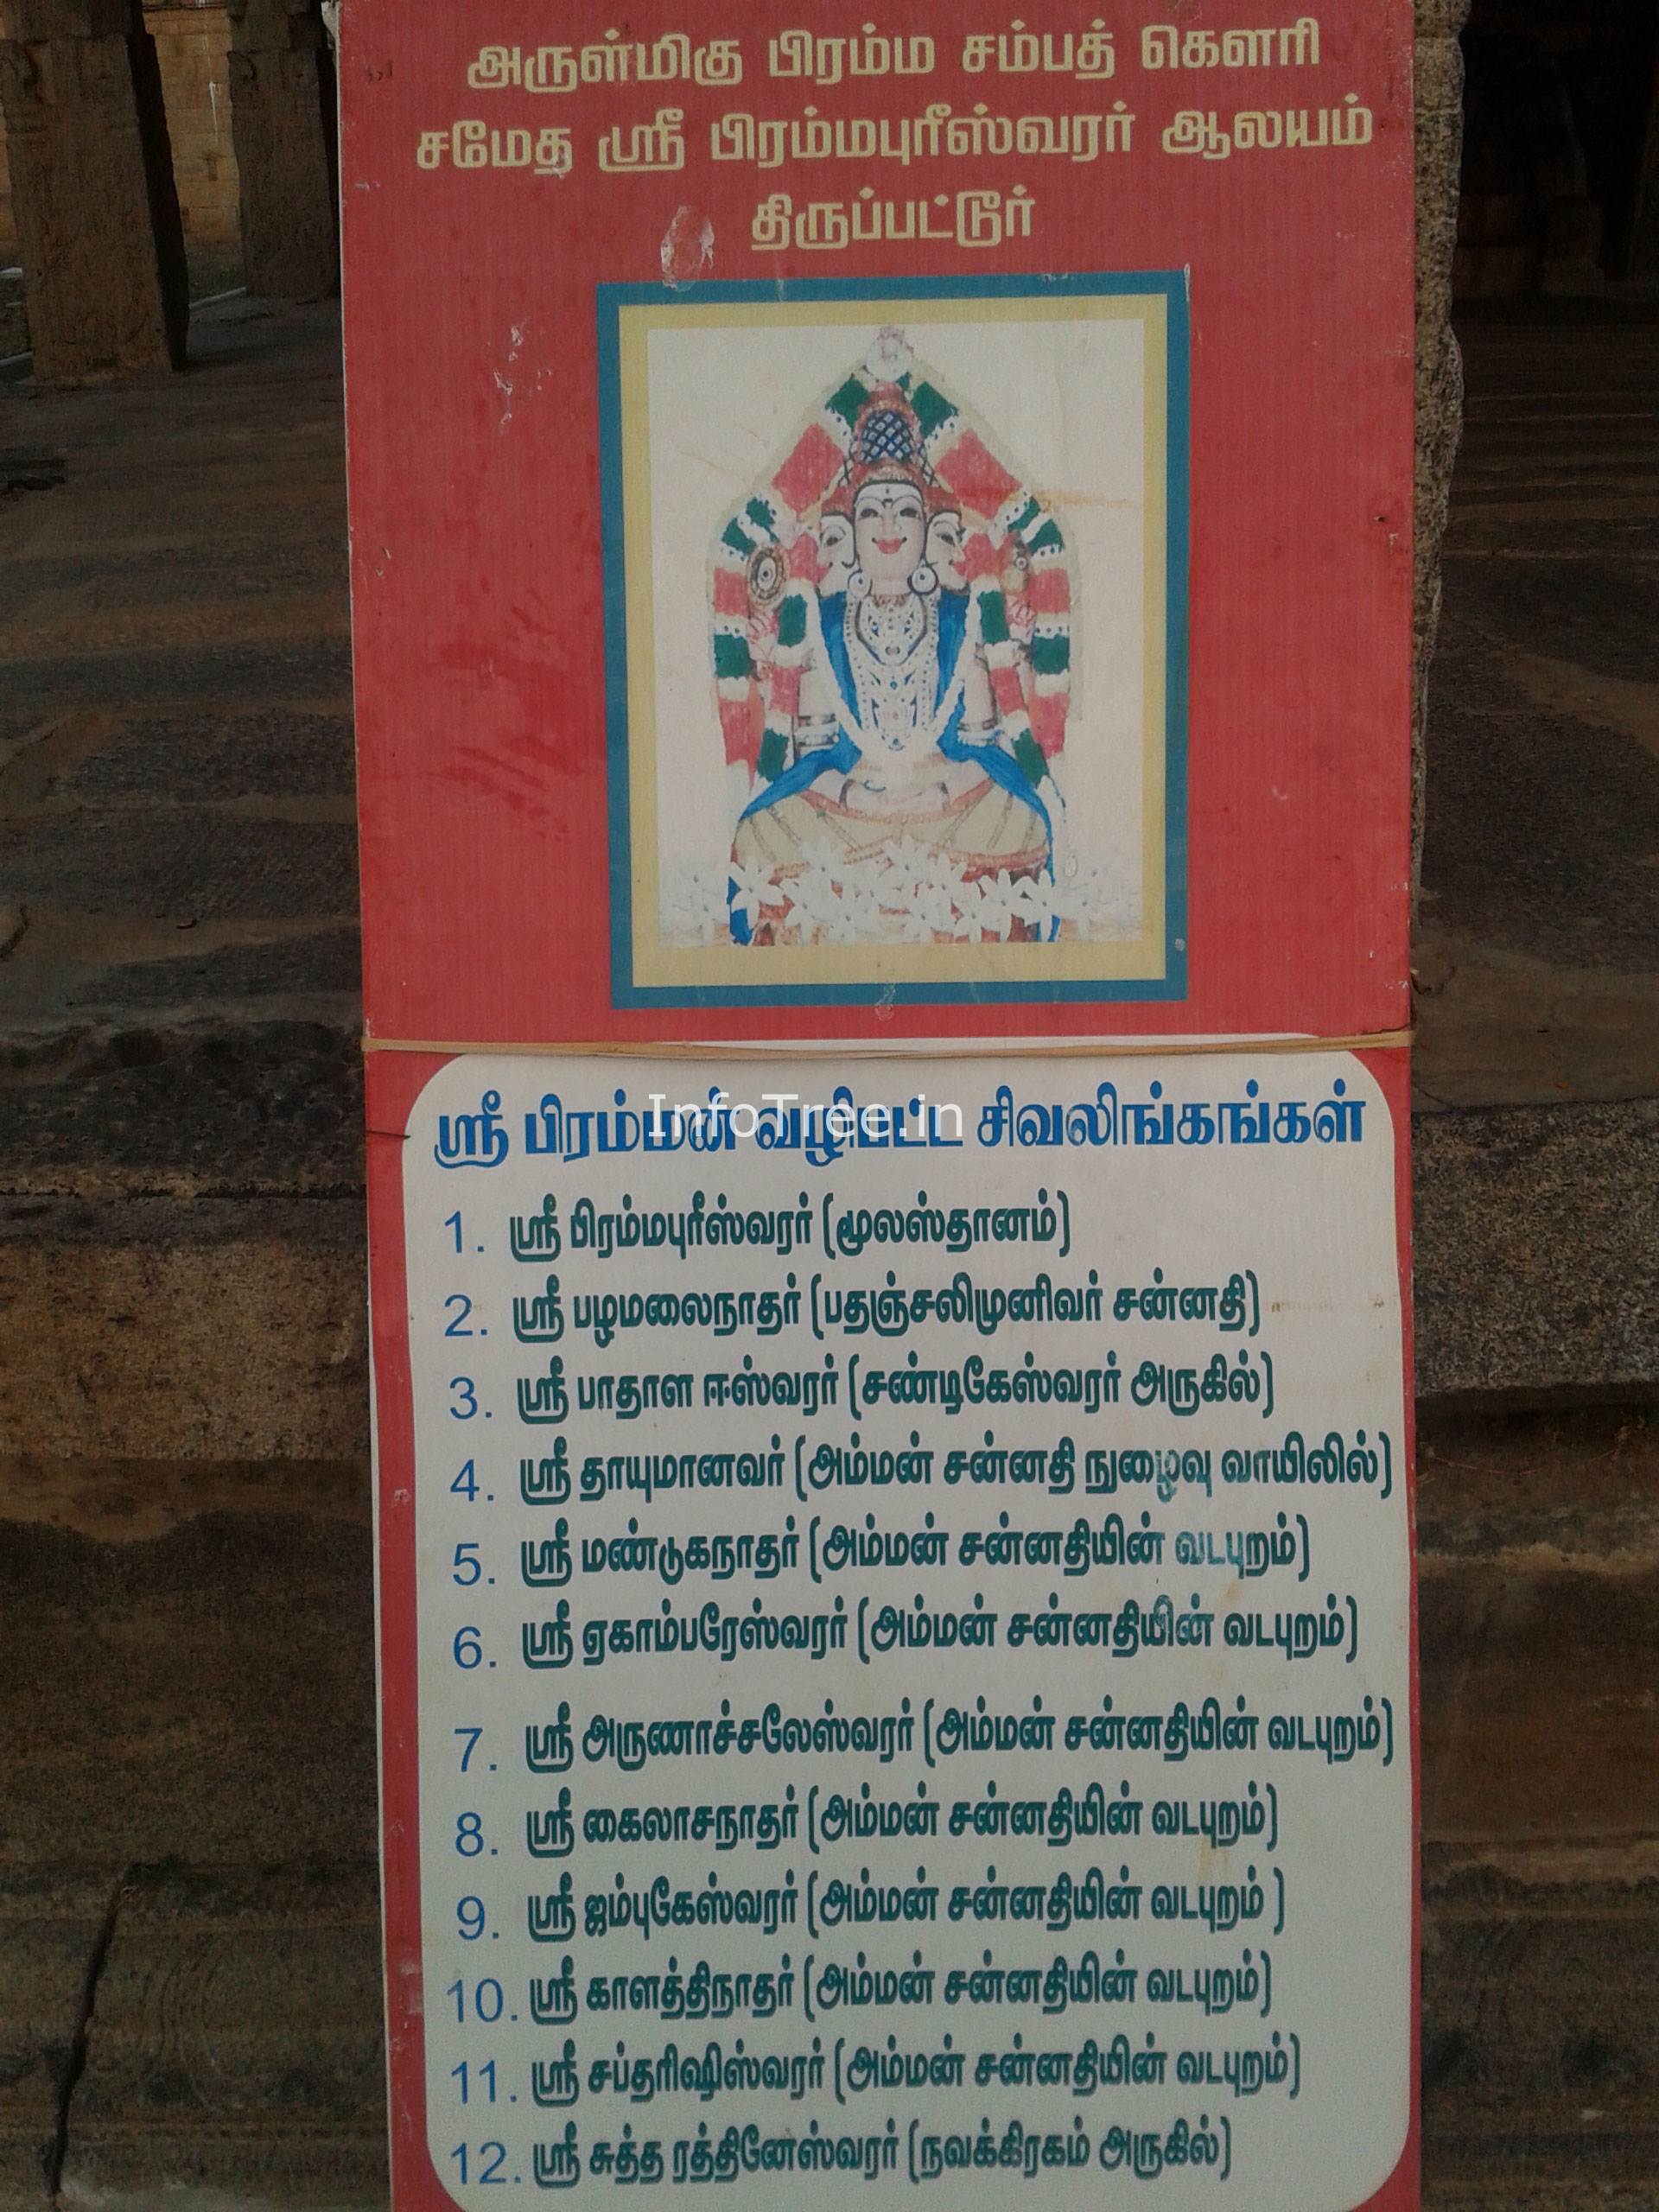 அருள்மிகு பிரம்ம சம்பத் கௌரி
சமேத ஸ்ரீ பிரம்மபுரீஸ்வரர் ஆலயம்
திருப்பட்டூர்
ஸ்ரீ பிரம்மன் வழிபட்ட சிவலிங்கங்கள்
InfoTree.in
1. ஸ்ரீ பிரம்மபுரீஸ்வரர் (மூலஸ்தானம்)
2. ஸ்ரீ பழமலைநாதர் (பதஞ்சலிமுனிவர் சன்னதி)
3. ஸ்ரீ பாதாள ஈஸ்வரர் (சண்டிகேஸ்வரர் அருகில்)
4. ஸ்ரீ தாயுமானவர் (அம்மன் சன்னதி நுழைவு வாயிலில்)
5. ஸ்ரீ மண்டுகநாதர் (அம்மன் சன்னதியின் வடபுறம்)
6. ஸ்ரீ ஏகாம்பரேஸ்வரர் (அம்மன் சன்னதியின் வடபுறம்)
7. ஸ்ரீ அருணாச்சலேஸ்வரர் (அம்மன் சன்னதியின் வடபுறம்)
8. ஸ்ரீ கைலாசநாதர் (அம்மன் சன்னதியின் வடபுறம்)
9. ஸ்ரீ ஜம்புகேஸ்வரர் (அம்மன் சன்னதியின் வடபுறம் )
10. ஸ்ரீ காளத்திநாதர் (அம்மன் சன்னதியின் வடபுறம்)
11. ஸ்ரீ சப்தரிஷிஸ்வரர் (அம்மன் சன்னதியின் வடபுறம்)
12. ஸ்ரீ சுத்த ரத்தினேஸ்வரர் (நவக்கிரகம் அருகில்)